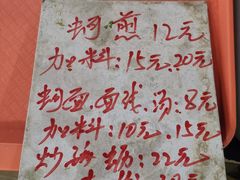 蚵煎12元
加料:15元、20元
蚵面、面线、汤:8元
加料:10元、15元
炒海蛎:22元